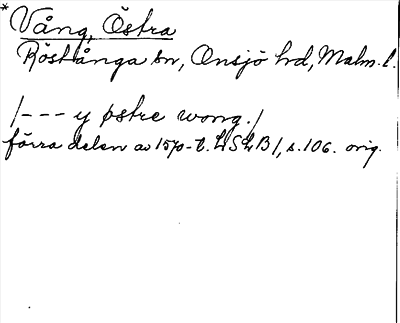 * Vång, Östra
Röstånga sn, Onsjö hd, Malm. l.
/--- y østre wong./
förra delen av 1570-t. LSLB 1, s. 106. orig.